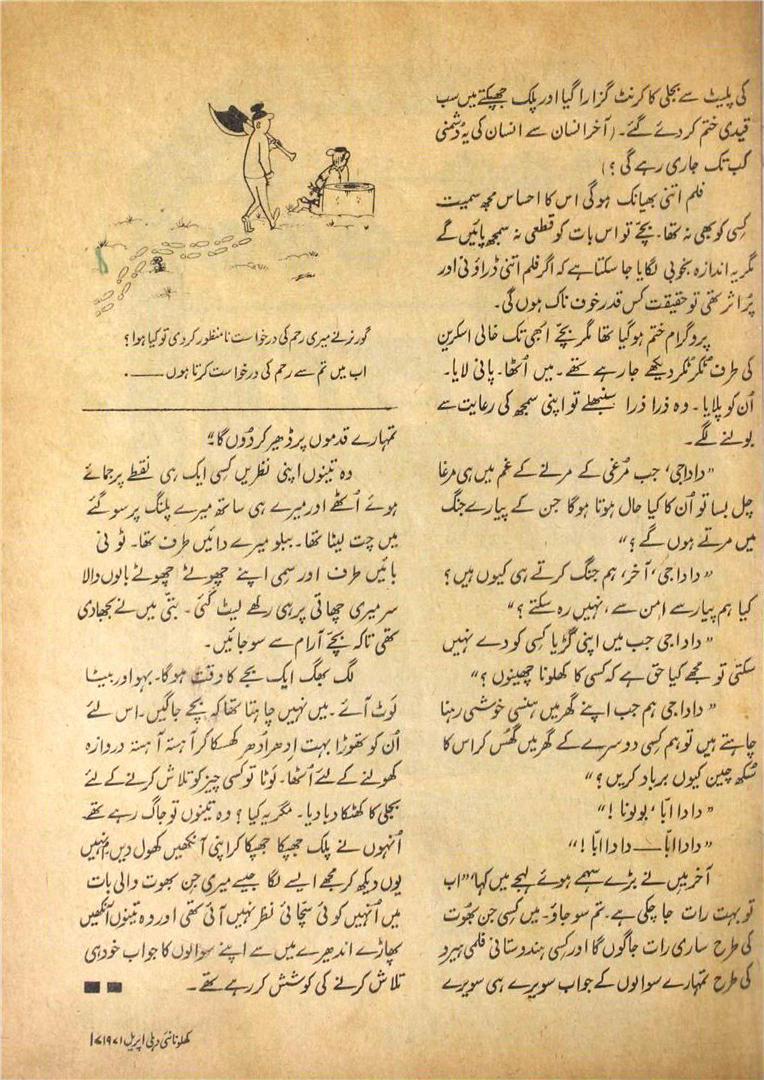 کی پلیٹ سے بجلی کا کرنٹ گزارا گیا اور پلک جھپکتے میں سب
قیدی ختم کر دئے گئے۔ (آخر انسان سے انسان کی یہ دُشمنی
کب تک جاری رہے گی ؟)
فلم اتنی بھیانک ہو گی اس کا احساس مجھ سمیت
کِسی کو بھی نہ تھا۔ بچّے تو اس بات کو قطعی نہ سمجھ پائیں گے
مگر یہ اندازہ بخوبی لگایا جا سکتا ہے کہ اگر فلم اتنی ڈراؤنی اور
پُر اثر تھی تو حقیقت کس قدر خوف ناک ہوں گی۔
پروگرام ختم ہو گیا تھا مگر بچّے ابھی تک خالی اسکرین
کی طرف ٹُکر ٹُکر دیکھے جا رہے تھے۔ میں اُٹھا۔ پانی لایا۔
اُن کو پلایا۔ وہ ذرا ذرا سنبھلے تو اپنی سمجھ کی رعایت سے
بولنے لگے۔
”دادا جی، جب مُرغی کے مرنے کے غم میں ہی مرغا
چل بسا تو اُن کا کیا حال ہوتا ہوگا جن کے پیارے جنگ
میں مرتے ہوں گے ؟“
”دادا جی، آخر، ہم جنگ کرتے ہی کیوں ہیں؟
کیا ہم پیار سے امن سے، نہیں رہ سکتے ؟“
”دادا جی جب میں اپنی گڑیا کسی کو دے نہیں
سکتی تو مجھے کیا حق ہے کہ کسی کا کھلونا چھینوں ؟“
”دادا جی ہم جب اپنے گھر میں ہنسی خوشی رہنا
چاہتے ہیں تو ہم کسی دوسرے کے گھر میں گھُس کر اس کا
سُکھ چین کیوں برباد کریں ؟“
”دادا ابّا، بولو نا !“
”دادا ابّا —— دادا ابّا !“
آخر میں نے بڑے سہمے ہوئے لہجے میں کہا، ”اب
تو بہت رات جا چکی ہے۔ تم سو جاؤ۔ میں کسی جن بھُوت
کی طرح ساری رات جاگوں گا اور کسی ہندوستانی فلمی ہیرو
کی طرح تمہارے سوالوں کے جواب سویرے ہی سویرے
گورنر نے میری رحم کی درخواست نا منظور کر دی تو کیا ہوا ؟
اب میں تم سے رحم کی درخواست کرتا ہوں ——.
تمہارے قدموں پر ڈھیر کر دُوں گا۔“
وہ تینوں اپنی نظریں کسی ایک ہی نقطہ پر جمائے
ہوئے اُٹھے اور میرے ہی ساتھ میرے پلنگ پر سو گئے
میں چت لیٹا تھا۔ ببلو میرے دائیں طرف تھا۔ ٹونی
بائیں طرف اور سمی اپنے چھوٹے چھوٹے بالوں والا
سر میری چھاتی پر ہی رکھے لیٹ گئی۔ بتّی میں نے بجھا دی
تھی تاکہ بچّے آرام سے سو جائیں۔
لگ بھگ ایک بجے کا وقت ہو گا۔ بہو اور بیٹا
لَوٹ آئے۔ میں نہیں چاہتا تھا کہ بچّے جاگیں۔ اس لئے
اُن کو تھوڑا بہت اِدھر اُدھر کھسکا کر آہستہ آہستہ دروازہ
کھولنے کے لئے اُٹھا۔ لَوٹا تو کسی چیز کو تلاش کرنے کے لئے
بجلی کا کھٹکا دبا دیا۔ مگر یہ کیا ؟ وہ تینوں تو جاگ رہے تھے۔
اُنہوں نے پلک جھپکا جھپکا کر اپنی آنکھیں کھول دیں۔ اُنہیں
یوں دیکھ کر مجھے ایسے لگا جیسے میری جِن بھوت والی بات
میں اُنہیں کوئی سچّائی نظر نہیں آئی تھی اور وہ تینوں آنکھیں
پھاڑے اندھیرے میں سے اپنے سوالوں کا جواب خود ہی
تلاش کرنے کی کوشش کر رہے تھے۔
کھلونا نئی دہلی اپریل ۱۹۷۱ء